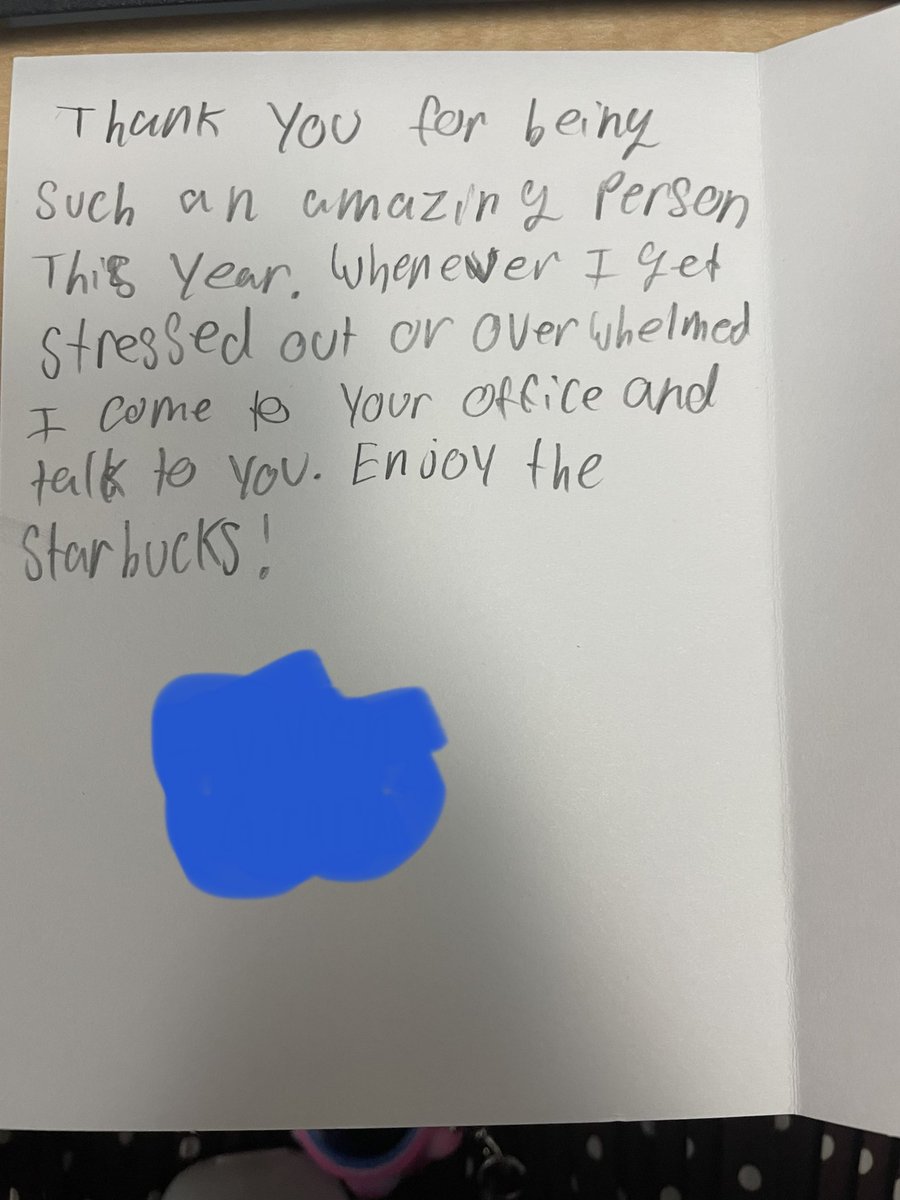 Thank You for being
Such an amazing Person
This Year. Whenever I get
Stressed out or overwhelmed
I come to Your office and
talk to You. Enjoy the
Starbucks!